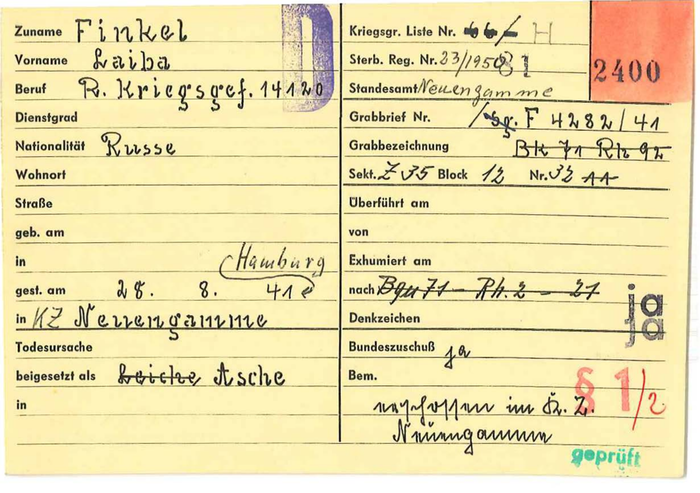 Zuname Finkel
Vorname Laiba
Beruf R. Kriegsgef. 14120
Dienstgrad
Nationalität Russe
Wohnort
Straße
geb. am
in Hamburg
gest. am 28. 8. 41
in KZ Neuengamme
Todesursache
beigesetzt als Leiche Asche
in
D
Kriegsgr. Liste Nr. H
Sterb. Reg. Nr. 23/1950 81
2400
Standesamt Neuengamme
Grabbrief Nr. F 4282/41
Grabbezeichnung Bk 71 Rh 92
Sekt. Z 35 Block 12 Nr. 32 11
Überführt am
von
Exhumiert am
nach Bgu 71 - Rh. 2 - 21
ja
ja
Denkzeichen
Bundeszuschuß ja
Bem.
§ 1/2
erschossen im K. Z.
Neuengamme
geprüft